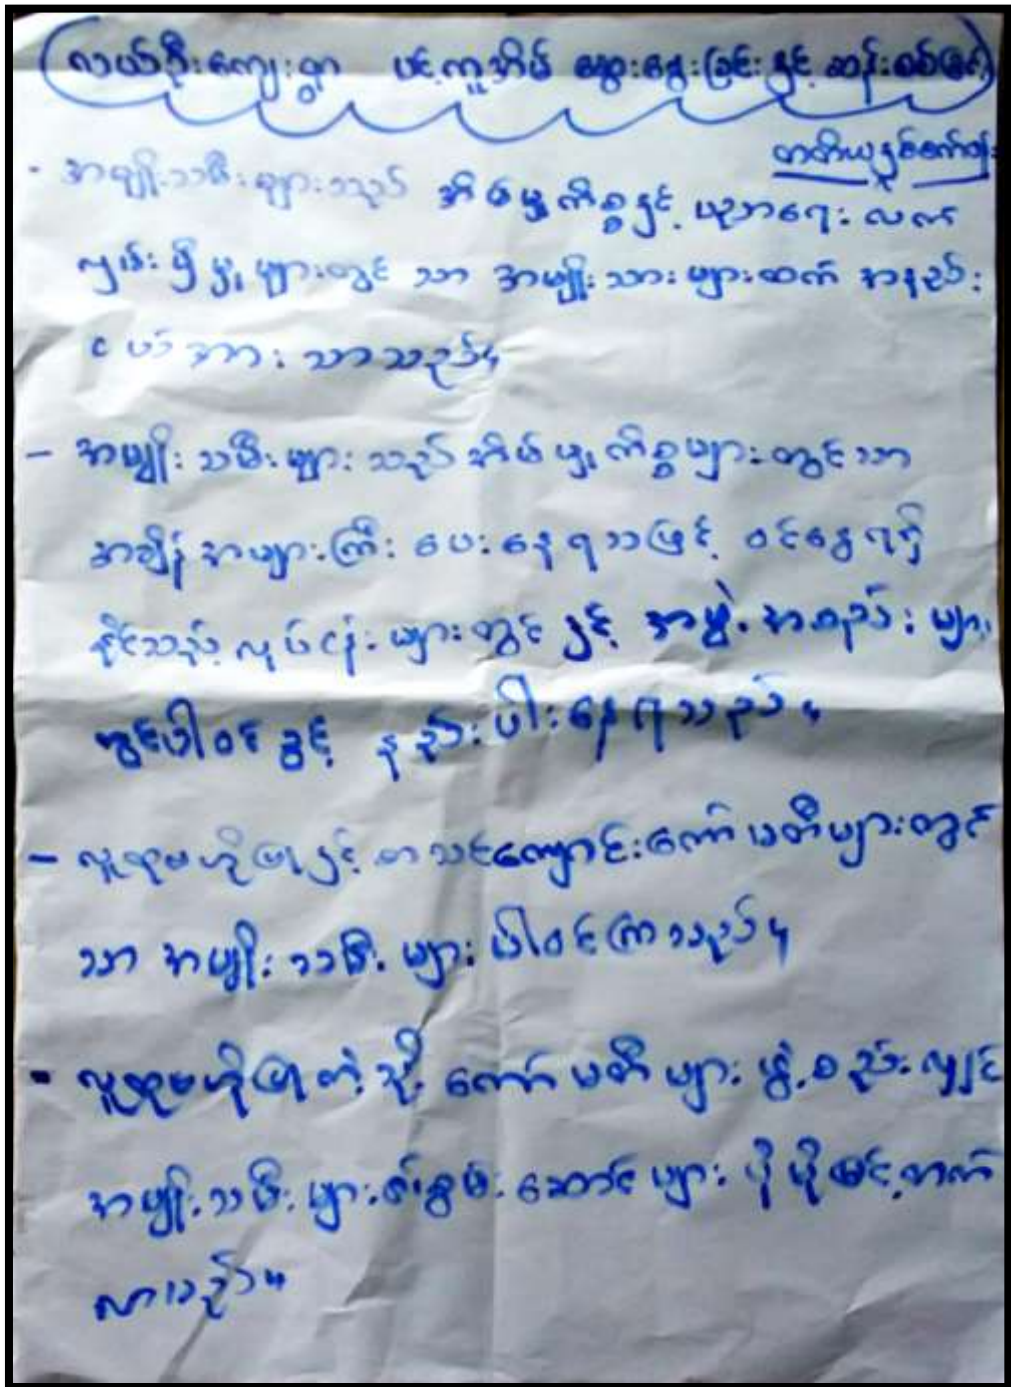 လယ်ဦးကျေးရွာ ပင့်ကူအိမ် ဆွေးနွေးခြင်းနှင့် ဆန်းစစ်ခြင်း
တတိယနှစ်ဝက်
- အမျိုးသမီးများသည် အိမ်မှုကိစ္စနှင့် ပညာရေး လက်
လှမ်းမှီမှုများတွင် သာ အမျိုးသားများထက် အနည်း
ငယ်အား သာသည်။
- အမျိုးသမီးများသည် အိမ်မှုကိစ္စများတွင်သာ
အချိန်အများကြီး ပေးနေရသဖြင့် ဝင်ငွေရရှိ
နိုင်သည့်လုပ်ငန်းများတွင်နှင့် အဖွဲ့အစည်းများ
တွင်ပါဝင်ခွင့် နည်းပါးနေရသည်။
- လူထုဗဟိုပြုနှင့် စာသင်ကျောင်းကော်မတီများတွင်
သာ အမျိုးသမီးများ ပါဝင်ကြသည်။
- လူထုဗဟိုပြုကဲ့သို့ ကော်မတီများ ဖွဲ့စည်းလျှင်
အမျိုးသမီးများစွမ်းဆောင်များ ပိုမိုမြင့်တက်
လာသည်။